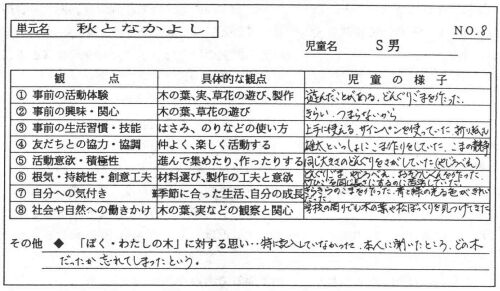 単元名 秋となかよし
NO.8
児童名 S男
観 点 具体的な観点 児 童 の 様 子
① 事前の活動体験 木の葉、実、草花の遊び、製作 遊んだことがある。どんぐりごまを作った。
② 事前の興味・関心 木の葉、草花の遊び きらい。つまらないから
③ 事前の生活習慣・技能 はさみ、のりなどの使い方 上手に使える。サインペンを使っていた。折り紙も
④ 友だちとの協力・協調 仲よく、楽しく活動する 雄太といっしょにこま作りをしていた。こまの競争
⑤ 活動意欲・積極性 進んで集めたり、作ったりする 同じ大きさのどんぐりをさがしていた
⑥ 根気・持続性・創意工夫 材料選び、製作の工夫と意欲 どんぐりごま、やじろべえ、を作った。
⑦ 自分への気付き 季節に合った生活、自分の成長 きらきらのこまを作った。青と緑の光る色がきれい
⑧ 社会や自然への働きかけ 木の葉、実などの観察と関心 学校の周りでも木の葉や松ぼっくりを見つけてきた
その他 ◆ 「ぼく・わたしの木」に対する思い‥特に記入していなかった。本人に聞いたところ、どの木
だったか忘れてしまったという。